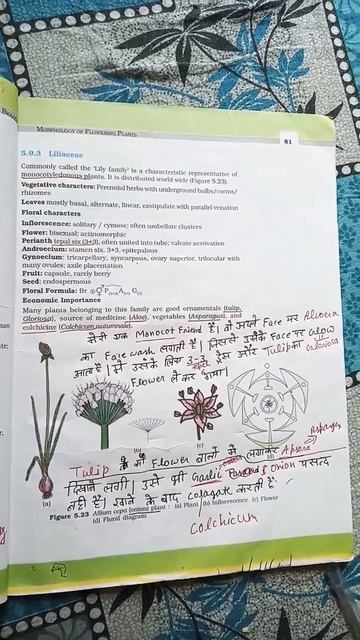 MORPHOLOGY OF FLOWERING PLANTS
81
5.9.3 Liliaceae
Commonly called the 'Lily family' is a characteristic representative of
monocotyledonous plants. It is distributed world wide (Figure 5.23).
Vegetative characters: Perennial herbs with underground bulbs/corms/
rhizomes
Leaves mostly basal, alternate, linear, exstipulate with parallel venation
Floral characters
Inflorescence: solitary / cymose; often umbellate clusters
Flower: bisexual; actinomorphic
Perianth tepal six (3+3), often united into tube; valvate aestivation
Androecium: stamen six, 3+3, epitepalous
Gynoecium: tricarpellary, syncarpous, ovary superior, trilocular with
many ovules; axile placentation
Fruit: capsule, rarely berry
Seed: endospermous
Floral Formula: Br ⊕ P(3+3) A3+3 G(3)
Economic Importance
Many plants belonging to this family are good ornamentals (tulip,
Gloriosa), source of medicine (Aloe), vegetables (Asparagus), and
colchicine (Colchicum autumnale).
मेरी एक Monocot Friend है। वो अपने Face पर Alovera
का Face wash लगाती है। जिससे उसके Face पर Glow
आता है। मैं उसके लिए 3-3 ड्रेस और Tulip का
Flower लेकर गया।
(b)
(c)
(d)
Tulip के Flower बालों में लगाकर Apsara
दिखने लगी। उसे भी Garlic & onion पसन्द
नहीं है। खाने के बाद colgate करती है
(a)
Figure 5.23 Allium cepa (onion) plant : (a) Plant (b) Inflorescence (c) Flower
(d) Floral diagram
Colchicum